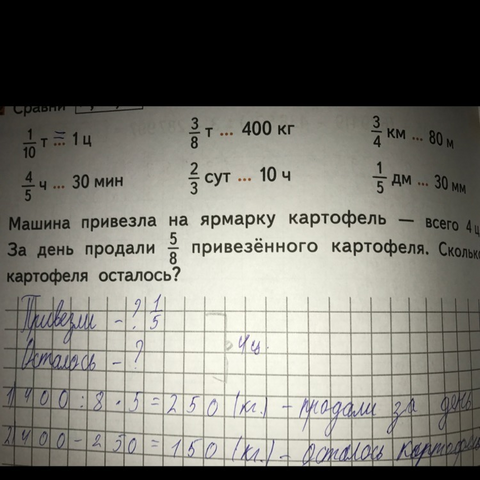 Сравни
1/10 т = 1 ц
3/8 т ... 400 кг
3/4 км ... 80 м
4/5 ч ... 30 мин
2/3 сут ... 10 ч
1/5 дм ... 30 мм
Машина привезла на ярмарку картофель — всего 4 ц
За день продали 5/8 привезённого картофеля. Сколько
картофеля осталось?
Привезли - ? 1/5
Осталось - ?
4ц.
1) 400 : 8 · 5 = 250 (кг.) - продали за день
2) 400 - 250 = 150 (кг.) - осталось